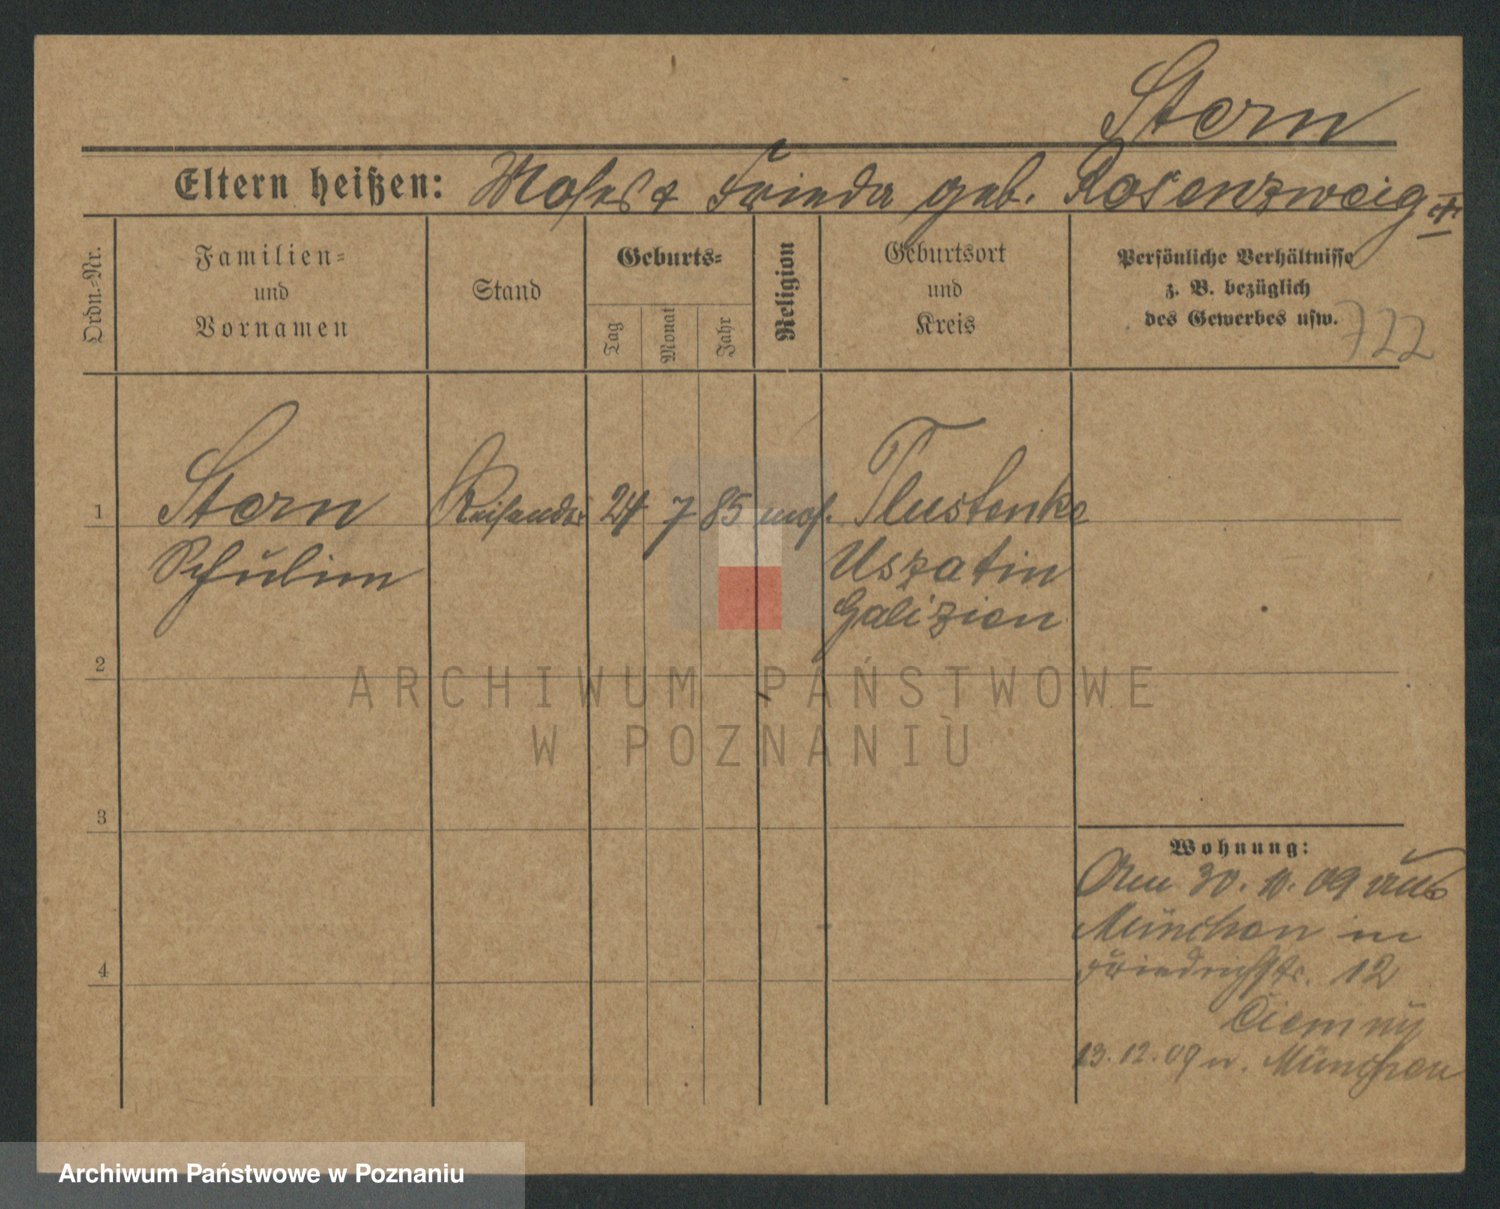 Stern
Eltern heißen: Moses & Frieda geb. Rosenzweig
Ordn.-Nr.
Familien-
und
Vornamen
Stand
Geburts-
Tag
Monat
Jahr
Religion
Geburtsort
und
Kreis
Persönliche Verhältnisse
z. B. bezüglich
des Gewerbes usw.
722
1
Stern
Schulim
Reisender
24 7 85 mos.
Tlustenke
Uszatin
Galizien
2
ARCHIWUM PAŃSTWOWE
W POZNANIU
3
Wohnung:
30. 11. 09 aus
München in
Friedrichstr. 12
4
13. 12. 09 n. München
Archiwum Państwowe w Poznaniu